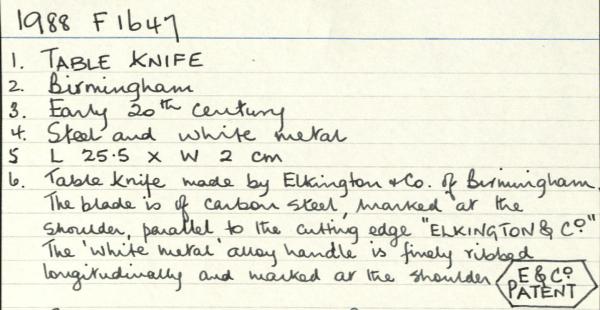 1988 F1647
1. TABLE KNIFE
2. Birmingham
3. Early 20th century
4. Steel and white metal
5 L 25.5 x W 2 cm
6. Table knife made by Elkington & Co. of Birmingham.
The blade is of carbon steel, marked at the
shoulder, parallel to the cutting edge "ELKINGTON & Co."
The 'white metal' alloy handle is finely ribbed
longitudinally and marked at the shoulder
E & Co.
PATENT